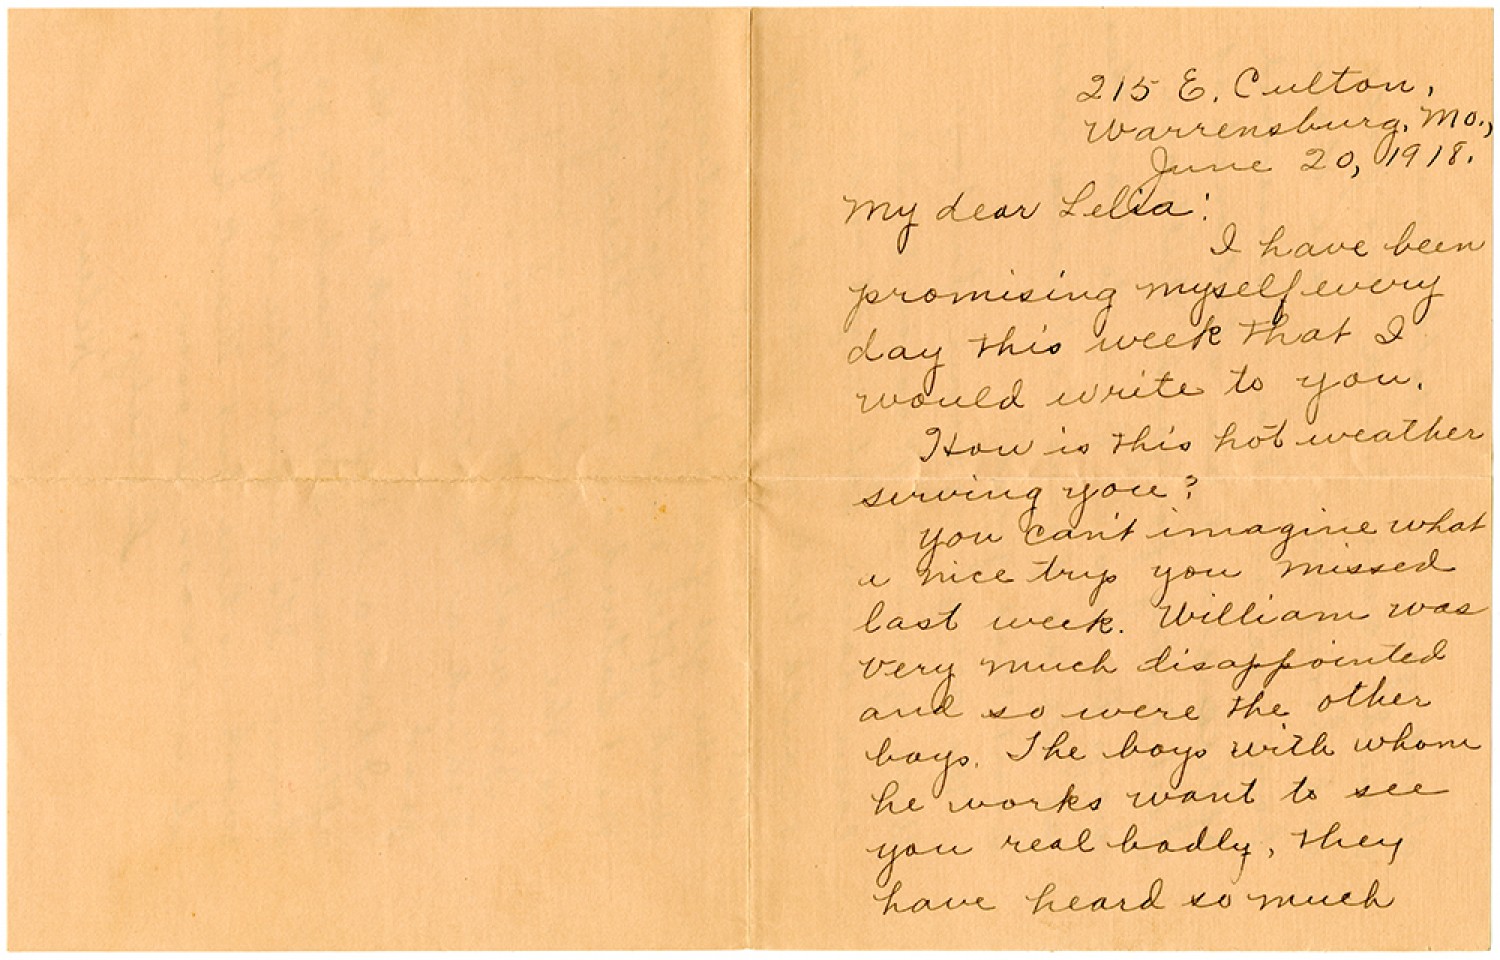 215 E. Culton,
Warrensburg, Mo.,
June 20, 1918.
My dear Lelia:
I have been
promising myself every
day this week that I
would write to you.
How is this hot weather
serving you?
You can't imagine what
a nice trip you missed
last week. William was
very much disappointed
and so were the other
boys. The boys with whom
he works want to see
you real badly, they
have heard so much